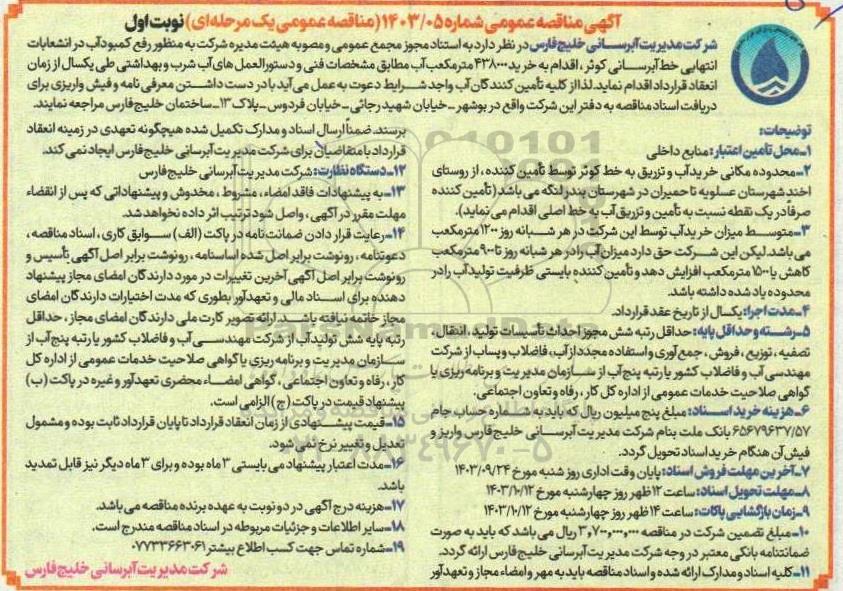 آگهی مناقصه عمومی شماره ۱۴۰۳/۰۵ (مناقصه عمومی یک مرحله‌ای) نوبت اول
شرکت مدیریت آبرسانی خلیج فارس در نظر دارد به استناد مجوز مجمع عمومی و مصوبه هیئت مدیره شرکت به منظور رفع کمبود آب در انشعابات
انتهایی خط آبرسانی کوثر ، اقدام به خرید ۴۳۸۰۰۰ مترمکعب آب مطابق مشخصات فنی و دستورالعمل های آب شرب و بهداشتی طی یکسال از زمان
انعقاد قرارداد اقدام نماید. لذا از کلیه تأمین کنندگان آب واجد شرایط دعوت به عمل می آید با در دست داشتن معرفی نامه و فیش واریزی برای
دریافت اسناد مناقصه به دفتر این شرکت واقع در بوشهر _ خیابان شهید رجائی _ خیابان فردوس _ پلاک ۱۳ _ ساختمان خلیج فارس مراجعه نمایند.
توضیحات:
۱_محل تامین اعتبار: منابع داخلی
۲_محدوده مکانی خرید آب و تزریق به خط کوثر توسط تأمین کننده ، از روستای
اخند شهرستان عسلویه تا حمیران در شهرستان بندر لنگه می باشد (تأمین کننده
صرفاً در یک نقطه نسبت به تأمین و تزریق آب به خط اصلی اقدام می نماید).
۳_متوسط میزان خرید آب توسط این شرکت در هر شبانه روز ۱۲۰۰ مترمکعب
می باشد. لیکن این شرکت حق دارد میزان آب را در هر شبانه روز تا ۹۰۰ مترمکعب
کاهش یا ۱۵۰۰ مترمکعب افزایش دهد و تأمین کننده بایستی ظرفیت تولید آب را در
محدوده یاد شده داشته باشد.
۴_مدت اجرا: یکسال از تاریخ عقد قرارداد.
۵_رشته و حداقل پایه: حداقل رتبه شش مجوز احداث تأسیسات تولید، انتقال،
تصفیه ، توزیع ، فروش ، جمع آوری و استفاده مجدد از آب، فاضلاب و پساب از شرکت
مهندسی آب و فاضلاب کشور یا رتبه پنج آب از سازمان مدیریت و برنامه ریزی یا
گواهی صلاحیت خدمات عمومی از اداره کل کار ، رفاه و تعاون اجتماعی.
۶_هزینه خرید اسناد: مبلغ پنج میلیون ریال که باید به شماره حساب جام
۶۵۶۷۹۶۳۷/۵۷ بانک ملت بنام شرکت مدیریت آبرسانی خلیج فارس واریز و
فیش آن هنگام خرید اسناد تحویل گردد.
۷_آخرین مهلت فروش اسناد: پایان وقت اداری روز شنبه مورخ ۱۴۰۳/۰۹/۲۴
۸_مهلت تحویل اسناد: ساعت ۱۲ ظهر روز چهارشنبه مورخ ۱۴۰۳/۱۰/۱۲
۹_زمان بازگشایی پاکات: ساعت ۱۴ ظهر روز چهارشنبه مورخ ۱۴۰۳/۱۰/۱۲
۱۰_مبلغ تضمین شرکت در مناقصه ۳,۷۰۰,۰۰۰,۰۰۰ ریال می باشد که باید به صورت
ضمانتنامه بانکی معتبر در وجه شرکت مدیریت آبرسانی خلیج فارس ارائه گردد.
۱۱_کلیه اسناد و مدارک ارائه شده و اسناد مناقصه باید به مهر و امضاء مجاز و تعهدآور
برسند. ضمناً ارسال اسناد و مدارک تکمیل شده هیچگونه تعهدی در زمینه انعقاد
قرارداد با متقاضیان برای شرکت مدیریت آبرسانی خلیج فارس ایجاد نمی کند.
۱۲_دستگاه نظارت: شرکت مدیریت آبرسانی خلیج فارس
۱۳_به پیشنهادات فاقد امضاء ، مشروط ، مخدوش و پیشنهاداتی که پس از انقضاء
مهلت مقرر در آگهی ، واصل شود ترتیب اثر داده نخواهد شد.
۱۴_رعایت قرار دادن ضمانت نامه در پاکت (الف) سوابق کاری ، اسناد مناقصه ،
دعوتنامه ، رونوشت برابر اصل شده اساسنامه ، رونوشت برابر اصل آگهی تأسیس و
رونوشت برابر اصل آگهی آخرین تغییرات در مورد دارندگان امضای مجاز پیشنهاد
دهنده برای اسناد مالی و تعهدآور بطوری که مدت اختیارات دارندگان امضای
مجاز خاتمه نیافته باشد. ارائه تصویر کارت ملی دارندگان امضای مجاز ، حداقل
رتبه پایه شش تولید آب از شرکت مهندسی آب و فاضلاب کشور یا رتبه پنج آب از
سازمان مدیریت و برنامه ریزی یا گواهی صلاحیت خدمات عمومی از اداره کل
کار ، رفاه و تعاون اجتماعی ، گواهی امضاء محضری تعهدآور و غیره در پاکت (ب)
پیشنهاد قیمت در پاکت (ج) الزامی است.
۱۵_قیمت پیشنهادی از زمان انعقاد قرارداد تا پایان قرارداد ثابت بوده و مشمول
تعدیل و تغییر نرخ نمی شود.
۱۶_مدت اعتبار پیشنهاد می بایستی ۳ ماه بوده و برای ۳ ماه دیگر نیز قابل تمدید
باشد.
۱۷_هزینه درج آگهی در دو نوبت به عهده برنده مناقصه می باشد.
۱۸_سایر اطلاعات و جزئیات مربوطه در اسناد مناقصه مندرج است.
۱۹_شماره تماس جهت کسب اطلاع بیشتر ۰۷۷۳۳۶۶۳۰۶۱
شرکت مدیریت آبرسانی خلیج فارس
ParsNamadData
۰۲۱-۸۸۳۴۹۶۷۰-۵